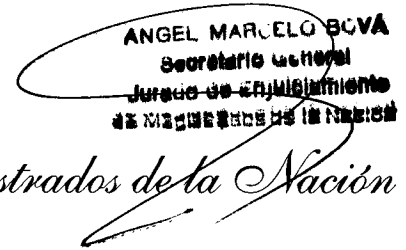 ANGEL MARCELO BOVA
Secretario General
Jurado de Enjuiciamiento
de Magistrados de la Nación
strados de la Nación